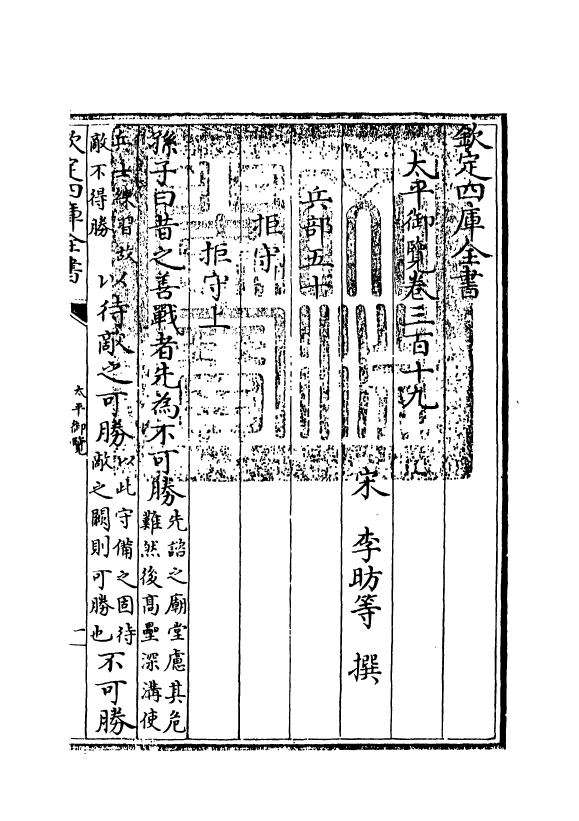 欽定四庫全書
太平御覽卷三百十九
宋 李昉等 撰
兵部五十
拒守
拒守上
孫子曰昔之善戰者先為不可勝先諮之廟堂慮其危
難然後高壘深溝使
兵士練習故以
敵不得勝以待敵之可勝以此守備之固待
敵之闕則可勝也不可勝
欽定四庫全書
太平御覽
一